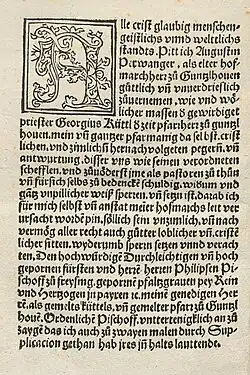 Alle crist glaubig menschen
geistlichs vnnd weltlichs
standts. Pitt ich Augustin
Perwanger, als elter hof
marchherr zu Guntzlhouen
güttlich vñ vnuerdrieslich
zuuernemen, wie vnd wöl
licher massen d gewirdiget
priester Georgius Küttl d zeit pfarrherr zů guntzl
houen. mein vñ gantzer pfarmanig da selbst. crist
lichen, vnd zimlichñ hernach volgeten pegern. vñ
antwurtung. disser vns wie seinen verordneten
schefflen, vnd zuuöderst jme als pastoren zu thün
vñ fürsich selbs zů bedencke schuldig, wisßum vnd
gätz vnpillicher weiß spertten, vñ setzn ist. darab ich
für mich selbst vñ anstat meier hofmarchs leit ver
ursacht wordē pin, söllich sein vnzimlich, vñ nach
vermög aller recht auch gütter loblicher vñ. crist
licher sitten. wyderumb spern setzen vnnd verach
ten, Den hochwürdigē Durchleichtigen vñ hoch
gepornen fürsten vnd herrē herren Philipsen Pi
schoff zu freysing. gepornnē pfaltzgrauen pey Rein
vnd Hertzogen in payrn ꝛc. meinē genedigen Her
rē. als gemelts küttels. vñ gemelter pfarr zů Guntzl
houē. Ordenlichē Pischoff. vntertenigklich an zů
zaygē das ich auch zů zwayen malen durch Sup
plicacion gethan hab jres jñhalts lauttende.